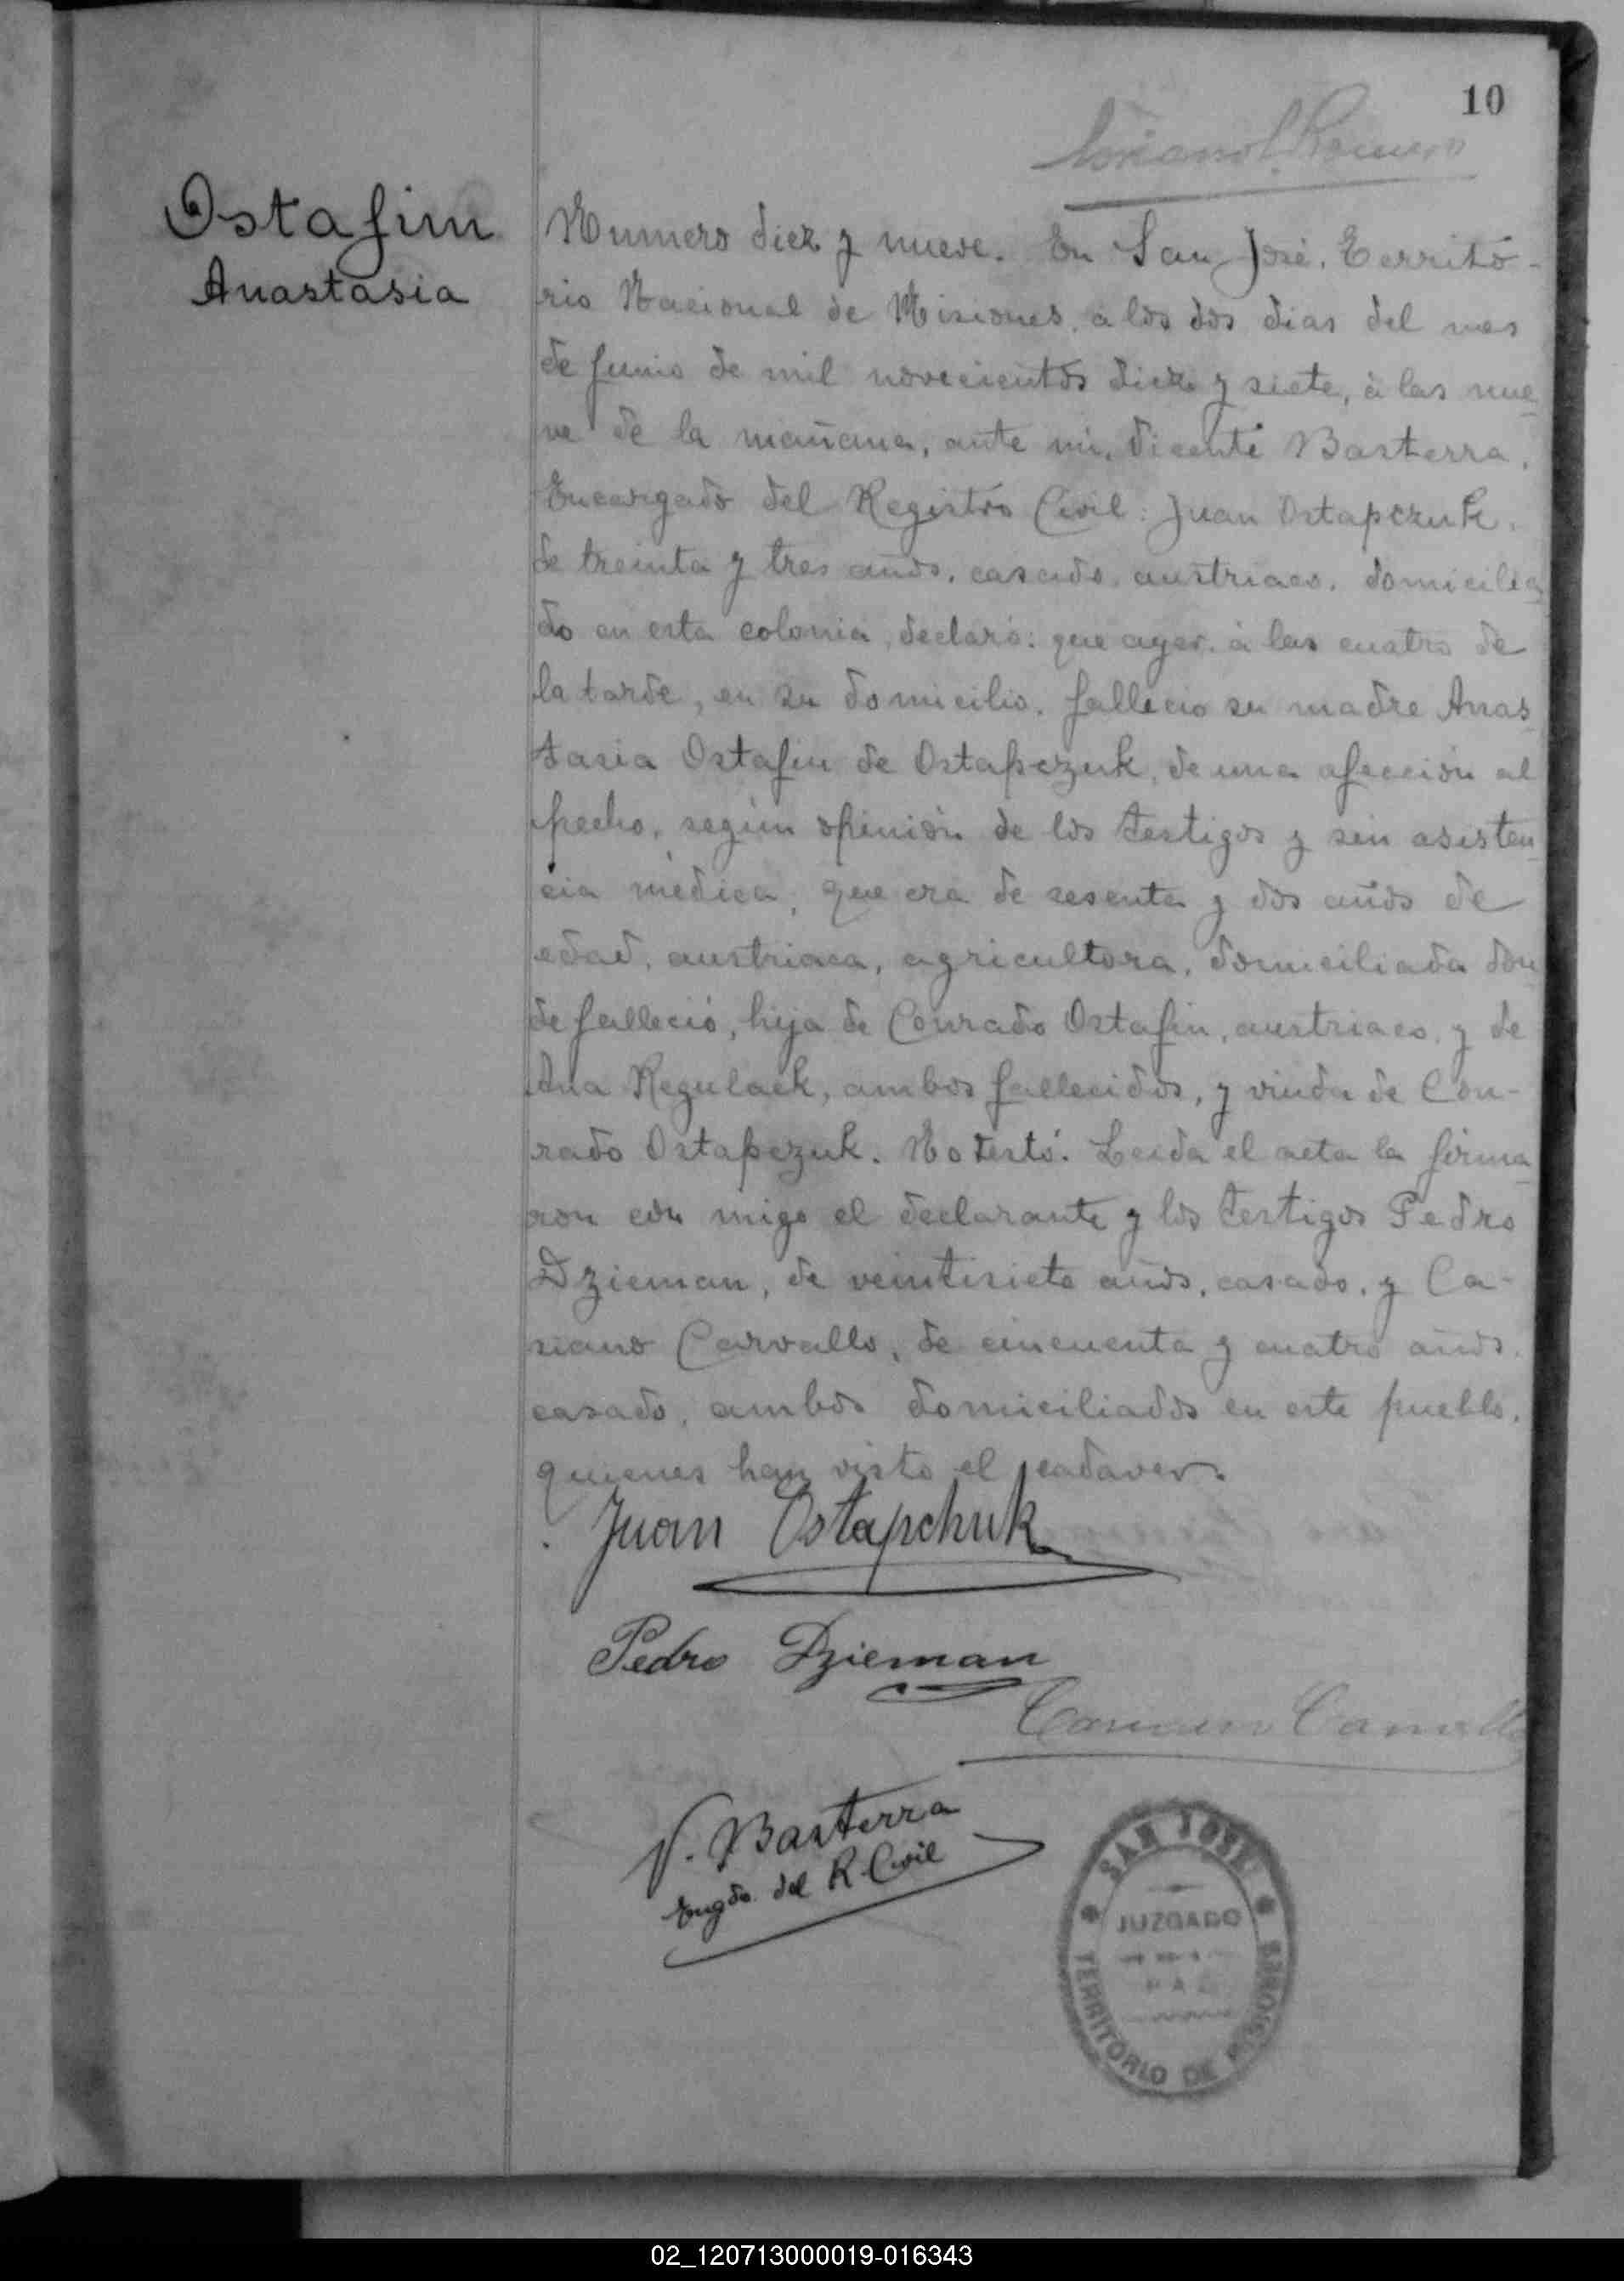 10
Romero
Ostafin
Anastasia
Numero diez y nueve. En San José, Territo-
rio Nacional de Misiones, a los dos dias del mes
de Junio de mil novecientos diez y siete, à las nue-
ve de la mañana, ante mi, Vicente Basterra,
Encargado del Registro Civil: Juan Ostapczuk,
de treinta y tres años, casado, austriaco, domicilia-
do en esta colonia, declaró: que ayer, à las cuatro de
la tarde, en su domicilio, fallecio su madre Anas-
tasia Ostafin de Ostapczuk, de una afección al
pecho, según opinión de los testigos y sin asisten-
cia médica, que era de sesenta y dos años de
edad, austriaca, agricultora, domiciliada don-
de falleció, hija de Conrado Ostafin, austriaco, y de
Ana Regulack, ambos fallecidos, y viuda de Con-
rado Ostapczuk. No testó. Leida el acta la firma-
ron con migo el declarante y los testigos Pedro
Dzieman, de veintisiete años, casado, y Ca-
siano Carvallo, de cincuenta y cuatro años,
casado, ambos domiciliados en este pueblo,
quienes han visto el cadaver.
Juan Ostapchuk
Pedro Dzieman
Casiano Carvallo
V. Basterra
Engdo. del R. Civil
SAN JOSE
JUZGADO
DE
PAZ
TERRITORIO DE MISIONES
02_120713000019-016343